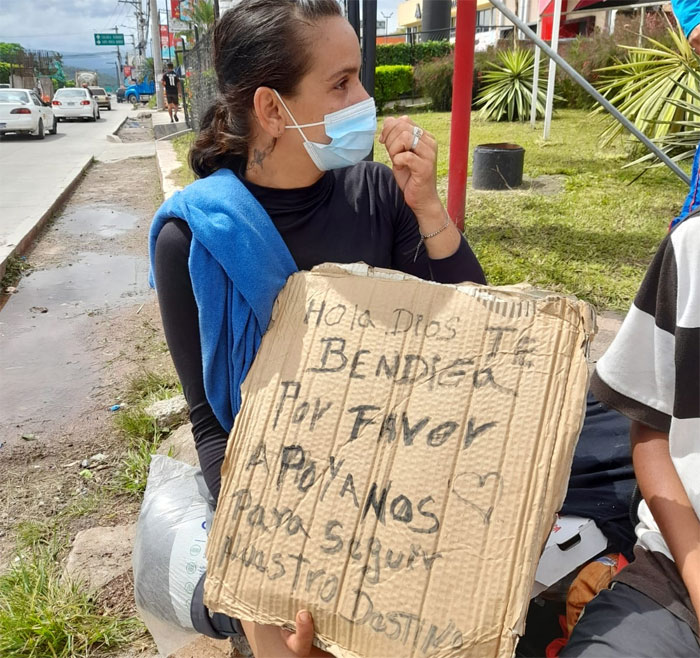 Hola Dios TE
BENDIGA
Por FAVOR
APOYANOS
Para seguir
nuestro Destino